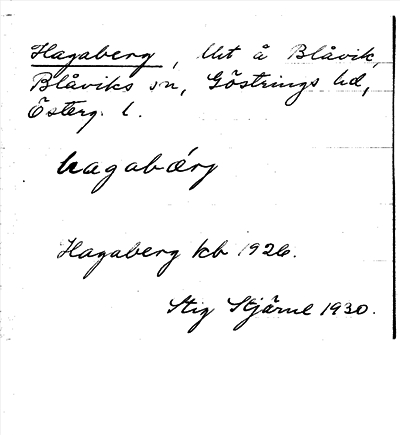 Hagaberg, lht å Blåvik,
Blåviks sn, Göstrings hd,
Österg. l.
hagabærg
Hagaberg kb 1926.
Stig Stjärne 1930.